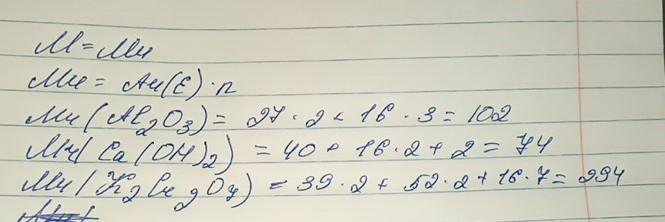 M = Mr
Mr = Ar(E) · n
Mr(Al₂O₃) = 27 · 2 + 16 · 3 = 102
Mr(Ca(OH)₂) = 40 + 16 · 2 + 2 = 74
Mr(K₂Cr₂O₇) = 39 · 2 + 52 · 2 + 16 · 7 = 294